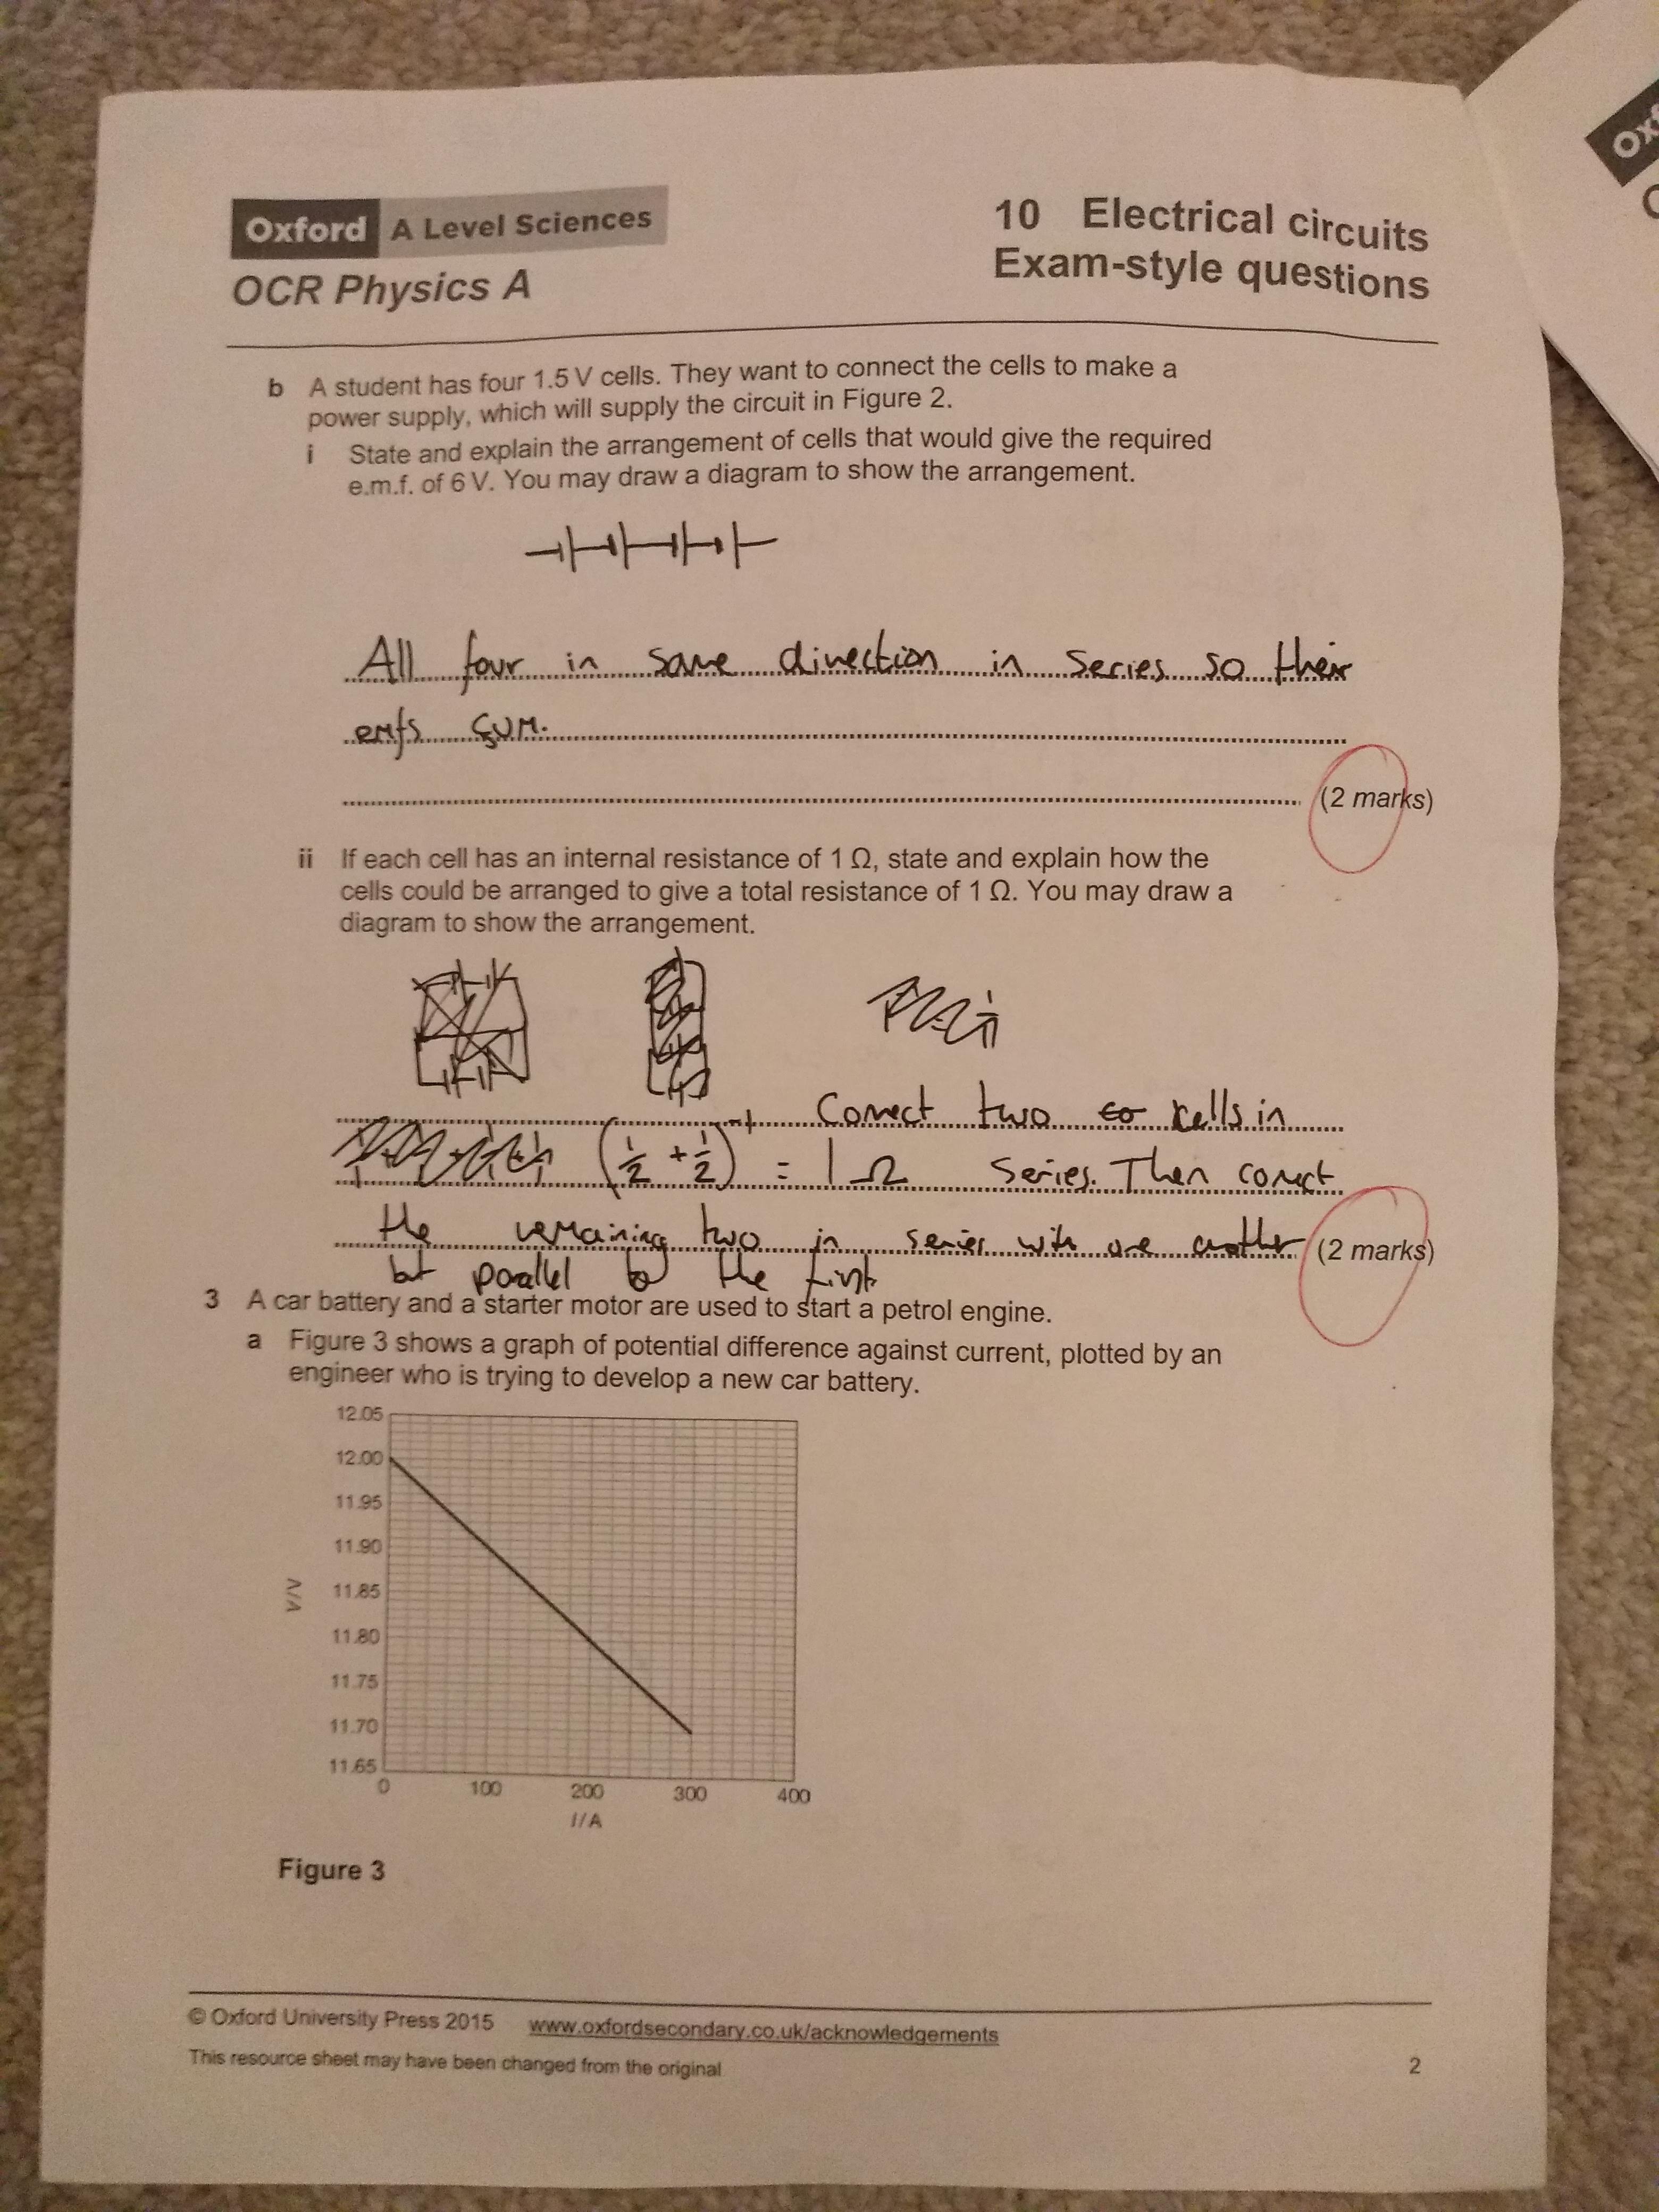 Oxford A Level Sciences
OCR Physics A
10 Electrical circuits
Exam-style questions
b A student has four 1.5 V cells. They want to connect the cells to make a
power supply, which will supply the circuit in Figure 2.
i State and explain the arrangement of cells that would give the required
e.m.f. of 6 V. You may draw a diagram to show the arrangement.
All four in same direction in series so their
emfs sum.
(2 marks)
ii If each cell has an internal resistance of 1 Ω, state and explain how the
cells could be arranged to give a total resistance of 1 Ω. You may draw a
diagram to show the arrangement.
Connect two cells in
(1/2 + 1/2)⁻¹ = 1 Ω series. Then connect
the remaining two in series with one another (2 marks)
but parallel to the first
3 A car battery and a starter motor are used to start a petrol engine.
a Figure 3 shows a graph of potential difference against current, plotted by an
engineer who is trying to develop a new car battery.
12.05
12.00
11.95
11.90
11.85
11.80
11.75
11.70
11.65
V/V
0 100 200 300 400
I/A
Figure 3
© Oxford University Press 2015 www.oxfordsecondary.co.uk/acknowledgements
This resource sheet may have been changed from the original
2